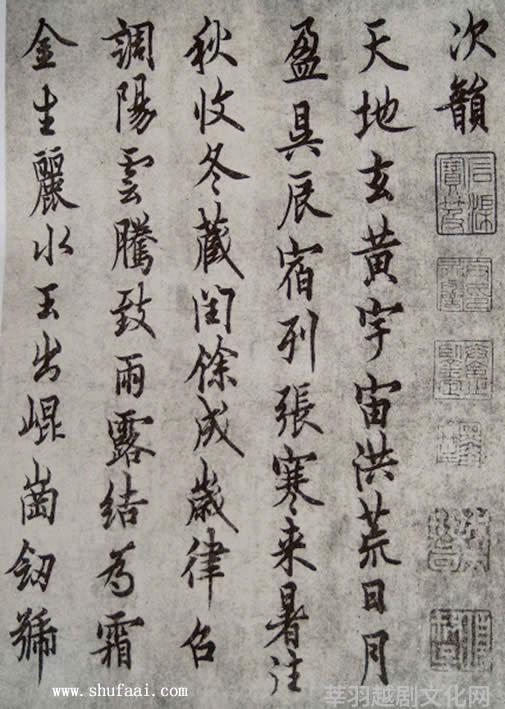 次韻
天地玄黄宇宙洪荒日月
盈昃辰宿列張寒来暑往
秋收冬藏閏餘成歲律召
調陽雲騰致雨露結為霜
金生麗水玉出崐崗劒號
www.shufaai.com
莘羽越剧文化网